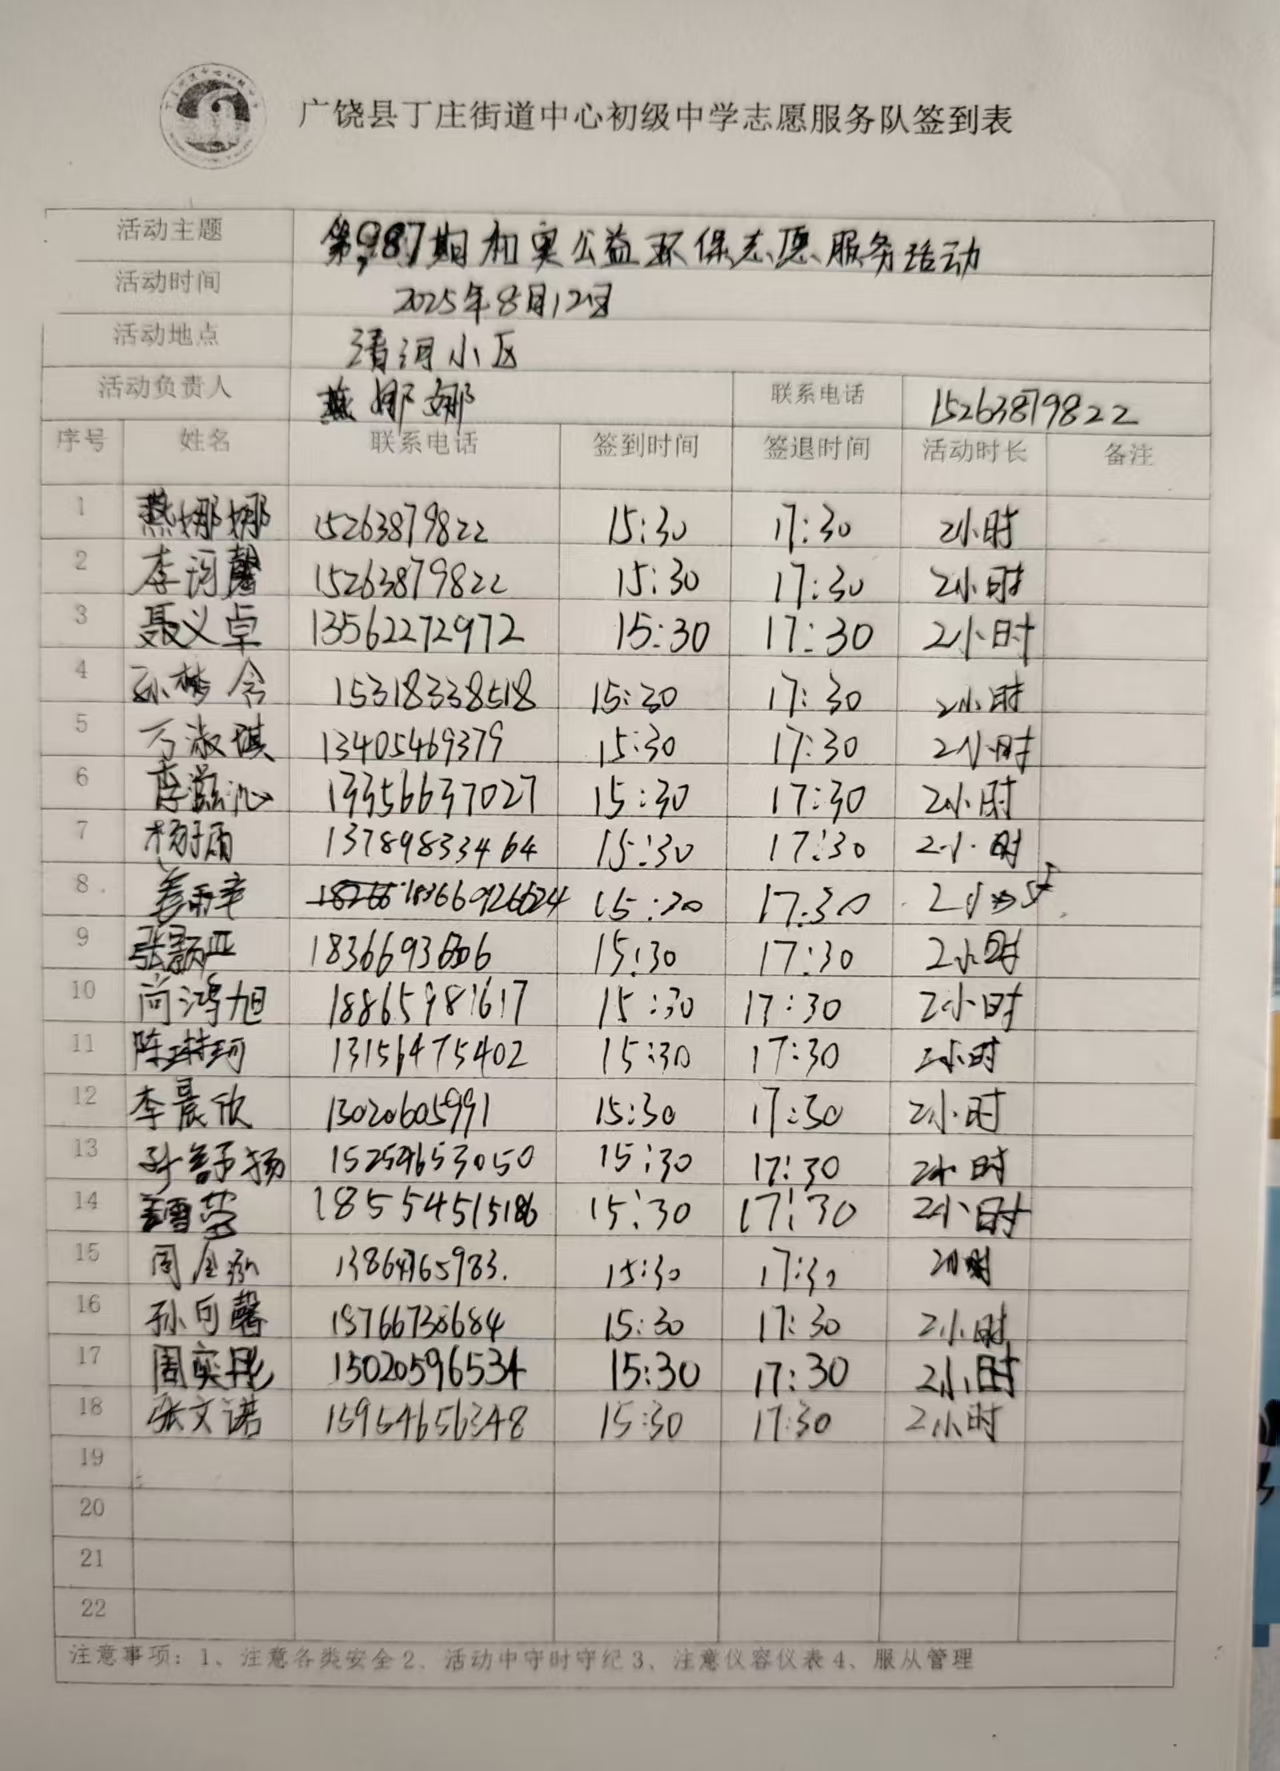 广饶县丁庄街道中心初级中学志愿服务队签到表
活动主题 第987期和奥公益环保志愿服务活动
活动时间 2025年8月12日
活动地点 清河小区
活动负责人 燕娜娜 联系电话 15263879822
序号 姓名 联系电话 签到时间 签退时间 活动时长 备注
1 燕娜娜 15263879822 15:30 17:30 2小时
2 李诗馨 15263879822 15:30 17:30 2小时
3 聂义卓 13562272972 15:30 17:30 2小时
4 孙梦含 15318338518 15:30 17:30 2小时
5 万淑琪 13405469379 15:30 17:30 2小时
6 李滋沁 13356637027 15:30 17:30 2小时
7 杨雨 13789833464 15:30 17:30 2小时
8 姜雨辛 18366926624 15:30 17:30 2小时
9 张颢亚 15:30 17:30 2小时
10 尚鸿旭 18865981617 15:30 17:30 2小时
11 陈琳珂 13156475402 15:30 17:30 2小时
12 李晨欣 13020605991 15:30 17:30 2小时
13 孙舒扬 15254653050 15:30 17:30 2小时
14 18554515186 15:30 17:30 2小时
15 周 13864765983. 15:30 17:30 2小时
16 孙向馨 18766738684 15:30 17:30 2小时
17 周奕彤 15020596534 15:30 17:30 2小时
18 张文诺 15954656348 15:30 17:30 2小时
19
20
21
22
注意事项：1、注意各类安全2、活动中守时守纪3、注意仪容仪表4、服从管理